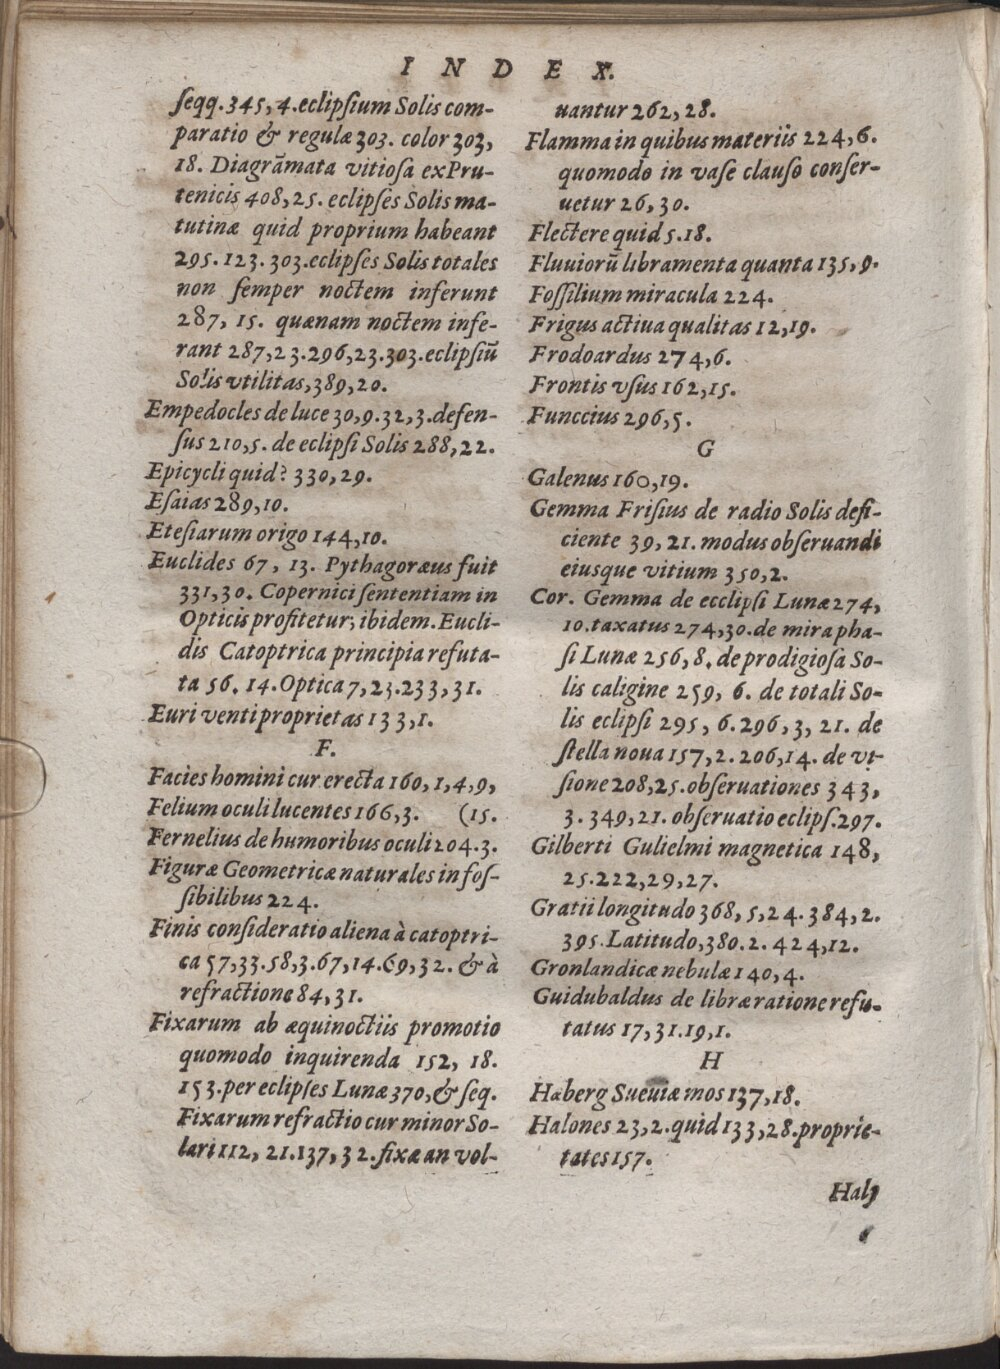 INDEX.
ſeqq. 345, 4. eclipſium Solis com-
paratio & regulæ 303. color 303,
18. Diagrãmata vitioſa ex Pru-
tenicis 408, 25. eclipſes Solis ma-
tutinæ quid proprium habeant
295. 123. 303. eclipſes Solis totales
non ſemper noctem inferunt
287, 15. quænam noctem infe-
rant 287, 23. 296, 23. 303. eclipſiũ
Solis vtilitas, 389, 20.
Empedocles de luce 30, 9. 32, 3. defen-
ſus 210, 5. de eclipſi Solis 288, 22.
Epicycli quid? 330, 29.
Eſaias 289, 10.
Eteſiarum origo 144, 10.
Euclides 67, 13. Pythagoræus fuit
331, 30. Copernici ſententiam in
Opticis profitetur; ibidem. Eucli-
dis Catoptrica principia refuta-
ta 56. 14. Optica 7, 23. 233, 31.
Euri venti proprietas 133, 1.
F.
Facies homini cur erecta 160, 1, 4, 9,
Felium oculi lucentes 166, 3. (15.
Fernelius de humoribus oculi 204. 3.
Figuræ Geometricæ naturales in foſ-
ſibilibus 224.
Finis conſideratio aliena à catoptri-
ca 57, 33. 58, 3. 67, 14. 69, 32. & à
refractione 84, 31.
Fixarum ab æquinoctiis promotio
quomodo inquirenda 152, 18.
153. per eclipſes Lunæ 370, & ſeq.
Fixarum refractio cur minor So-
lari 112, 21. 137, 32. fixæ an vol-
uantur 262, 28.
Flamma in quibus materiis 224, 6.
quomodo in vaſe clauſo conſer-
uetur 26, 30.
Flectere quid 5. 18.
Fluuiorũ libramenta quanta 135, 9.
Foſſilium miracula 224.
Frigus actiua qualitas 12, 19.
Frodoardus 274, 6.
Frontis vſus 162, 15.
Funccius 296, 5.
G
Galenus 160, 19.
Gemma Friſius de radio Solis defi-
ciente 39, 21. modus obſeruandi
eiusque vitium 350, 2.
Cor. Gemma de ecclipſi Lunæ 274,
10. taxatus 274, 30. de mira pha-
ſi Lunæ 256, 8. de prodigioſa So-
lis caligine 259, 6. de totali So-
lis eclipſi 295, 6. 296, 3, 21. de
ſtella noua 157, 2. 206, 14. de vi-
ſione 208, 25. obſeruationes 343,
3. 349, 21. obſeruatio eclipſ. 297.
Gilberti Gulielmi magnetica 148,
25. 222, 29, 27.
Gratii longitudo 368, 5, 24. 384, 2.
395. Latitudo, 380. 2. 424, 12.
Gronlandicæ nebulæ 140, 4.
Guidubaldus de libræ ratione refu-
tatus 17, 31. 19, 1.
H
Haberg Sueuiæ mos 137, 18.
Halones 23, 2. quid 133, 28. proprie-
tates 157.
Haly